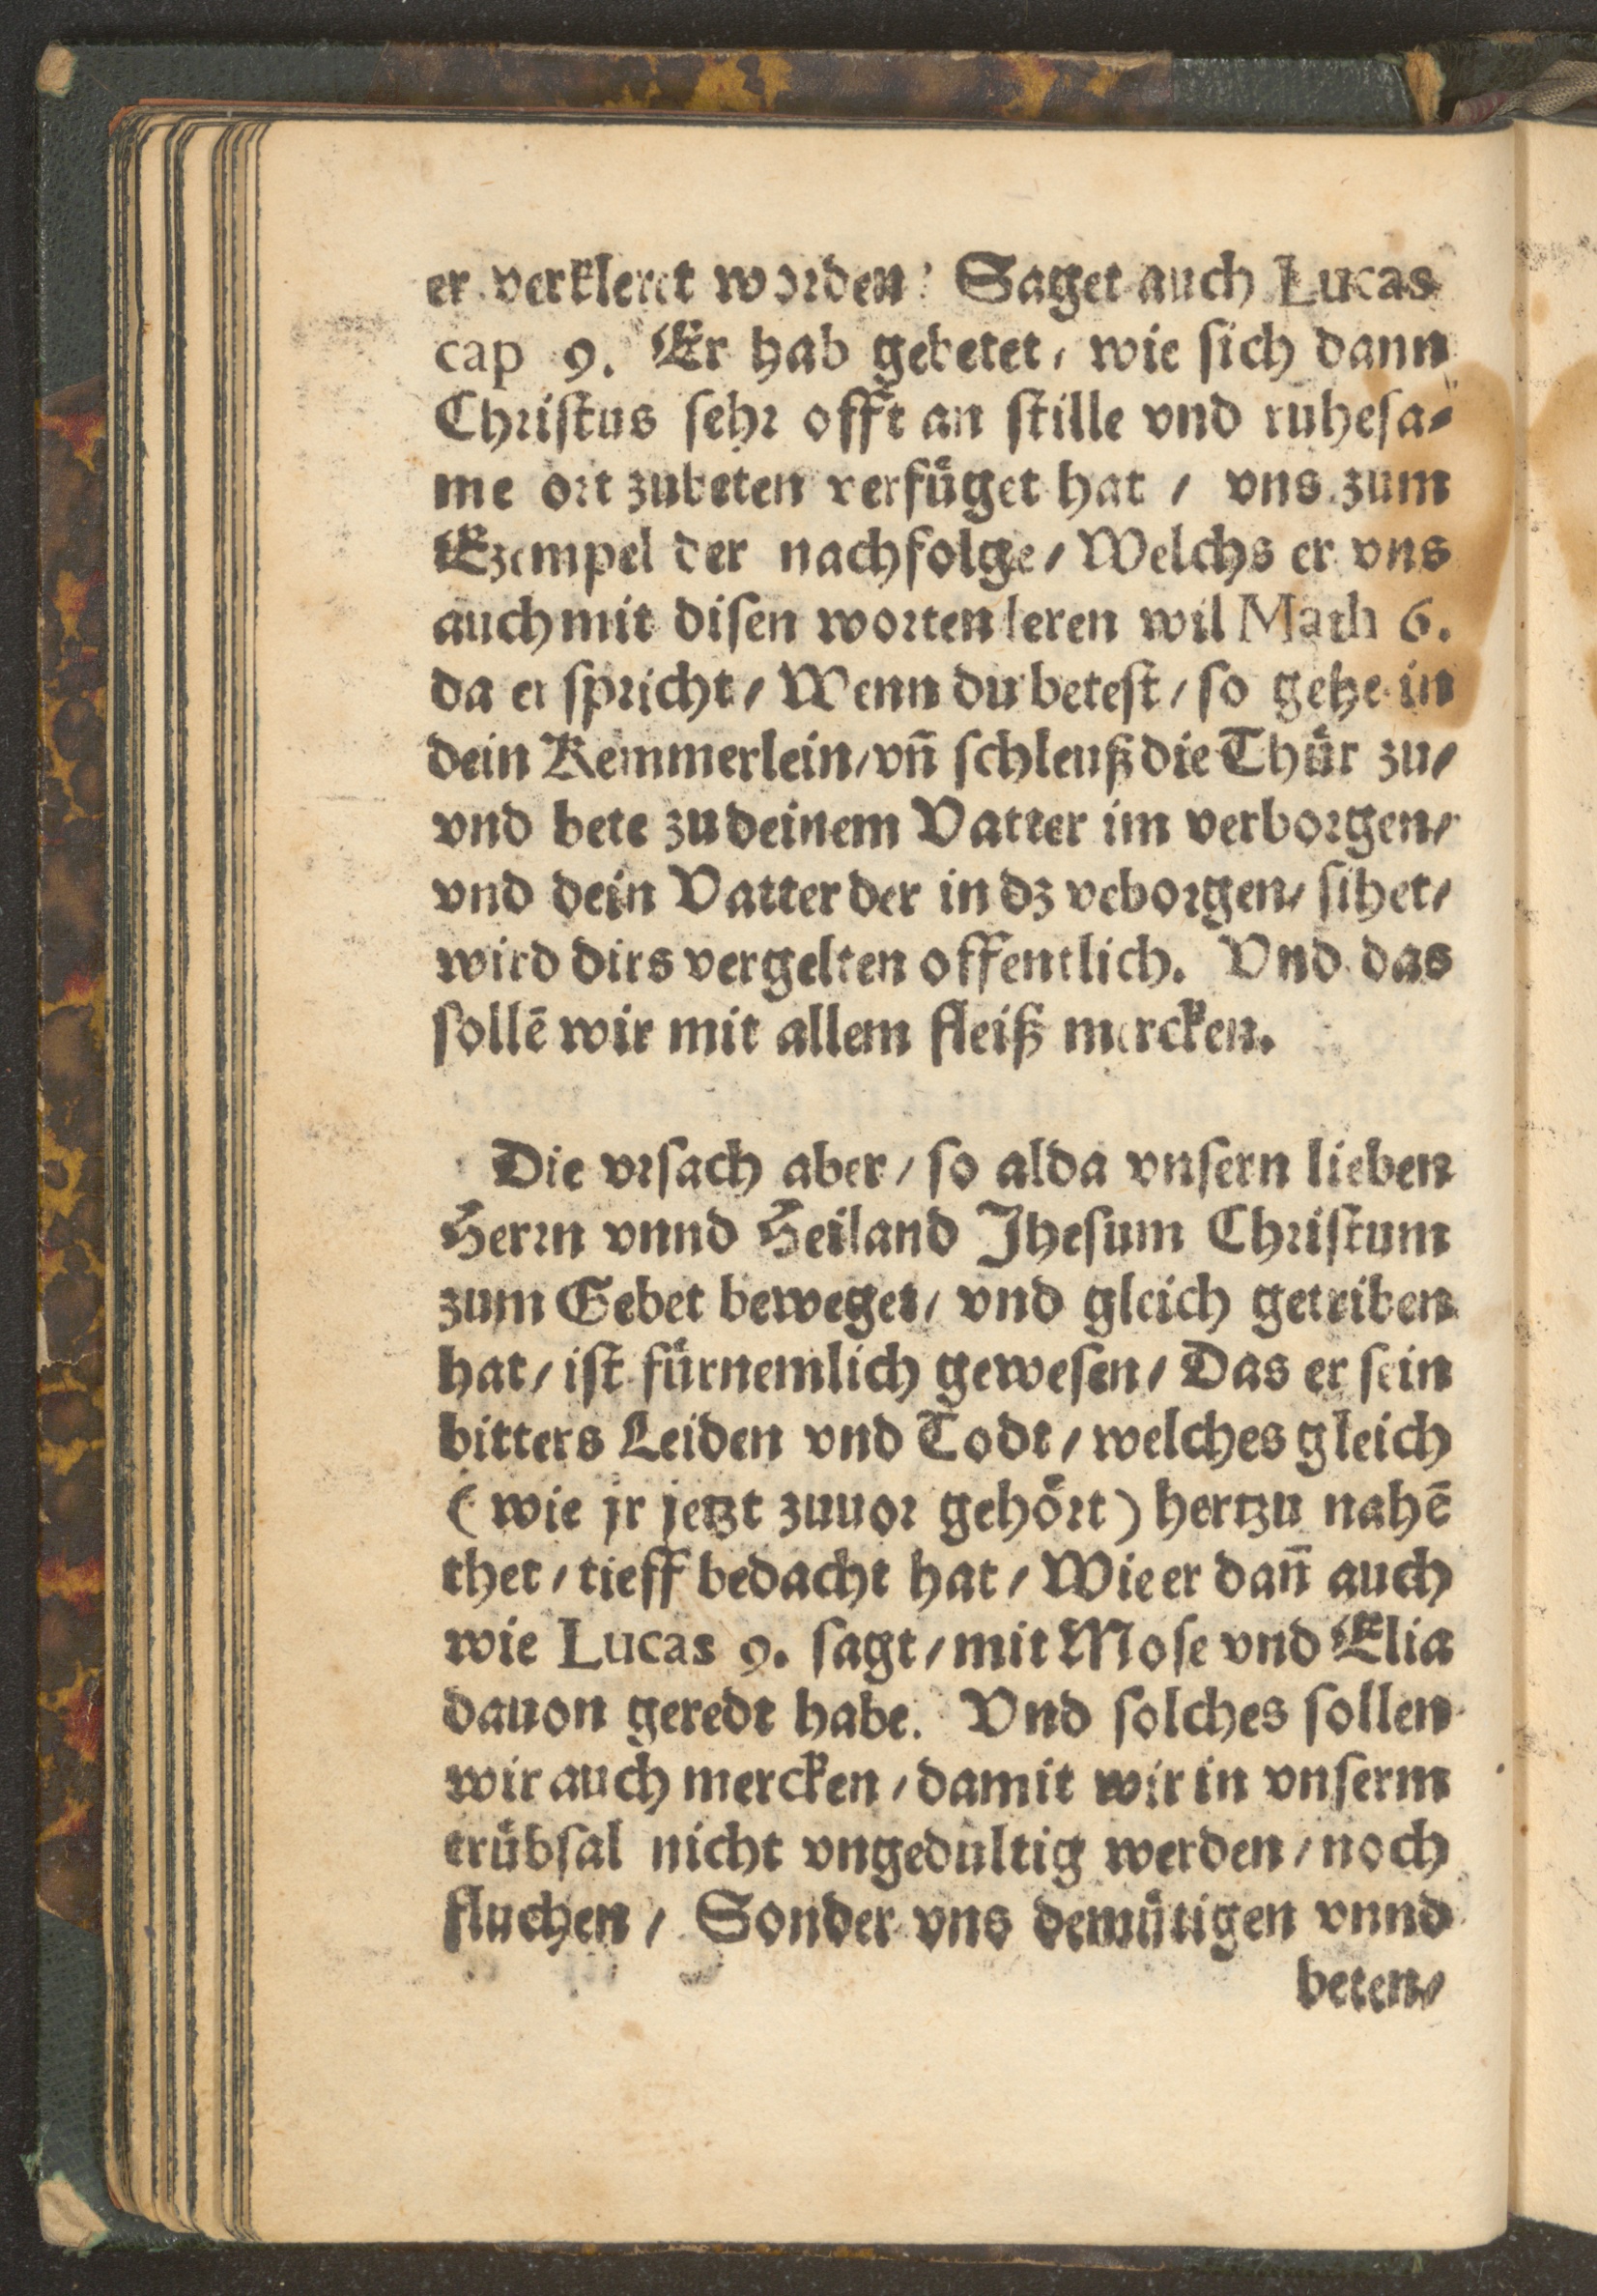 er verkleret worden: Saget auch Lucas
cap 9. Er hab gebetet, wie sich dann
Christus sehr offt an stille vnd ruhesa-
me ort zubeten verfuͤget hat / vns zum
Exempel der nachfolge / Welchs er vns
auch mit disen worten leren wil Math 6.
da er spricht / Wenn du betest / so gehe in
dein Kemmerlein / vñ schleuß die Thuͤr zu /
vnd bete zu deinem Vatter im verborgen /
vnd dein Vatter der in dz veborgen / sihet /
wird dirs vergelten offentlich. Vnd das
sollē wir mit allem fleiß mercken.
Die vrsach aber / so alda vnsern lieben
Herrn vnnd Heiland Jhesum Christum
zum Gebet beweget / vnd gleich getriben
hat / ist fuͤrnemlich gewesen / Das er sein
bitters Leiden vnd Todt / welches gleich
( wie jr jetzt zuuor gehoͤrt ) hertzu nahē
thet / tieff bedacht hat / Wie er dañ auch
wie Lucas 9. sagt / mit Mose vnd Elia
dauon geredt habe. Vnd solches sollen
wir auch mercken / damit wir in vnserm
truͤbsal nicht vngedultig werden / noch
fluchen / Sonder vns demuͤtigen vnnd
beten /